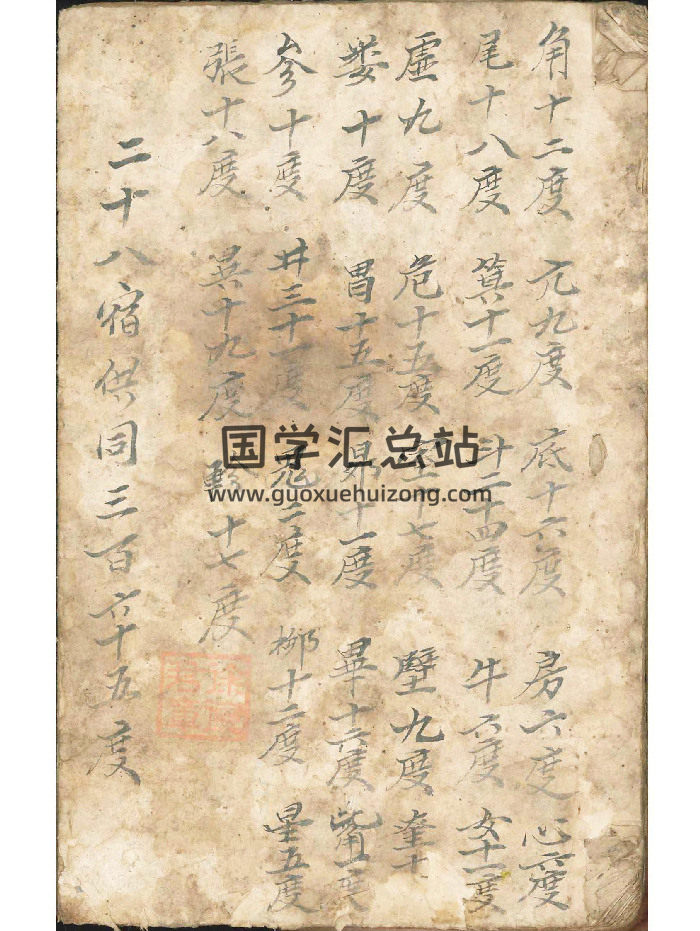 角十二度 亢九度 底十六度 房六度 心六度
尾十八度 箕十一度 斗二十四度 牛六度 女十一度
虛九度 危十五度 室十七度 壁九度 奎十
娄十度 胃十五度 昴十一度 畢十六度 觜一度
参十度 井三十一度 鬼二度 柳十二度 星五度
張十八度 翼十九度 軫十七度
二十八宿供同三百六十五度
国学汇总站
www.guoxuehuizong.com